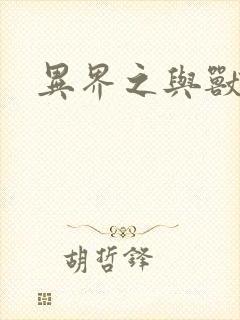 異界之與獸
胡哲鋒